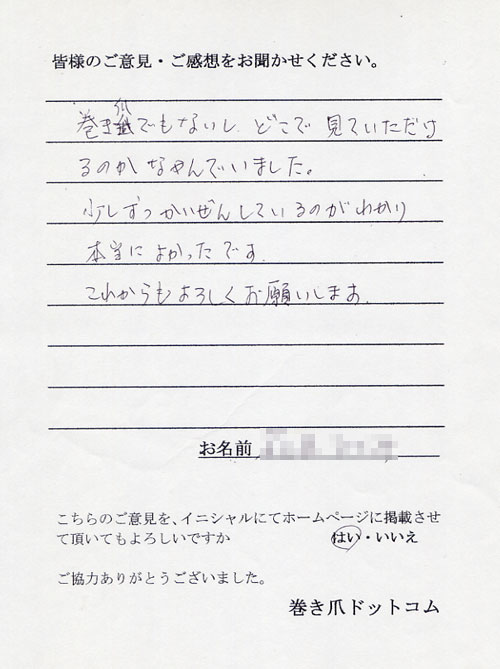 皆様のご意見・ご感想をお聞かせください。
巻き爪でもないし、どこで見ていただけ
るのかなやんでいました。
少しずつかいぜんしているのがわかり
本当によかったです。
これからもよろしくお願いします。
お名前
こちらのご意見を、イニシャルにてホームページに掲載させ
て頂いてもよろしいですか はい・いいえ
ご協力ありがとうございました。
巻き爪ドットコム